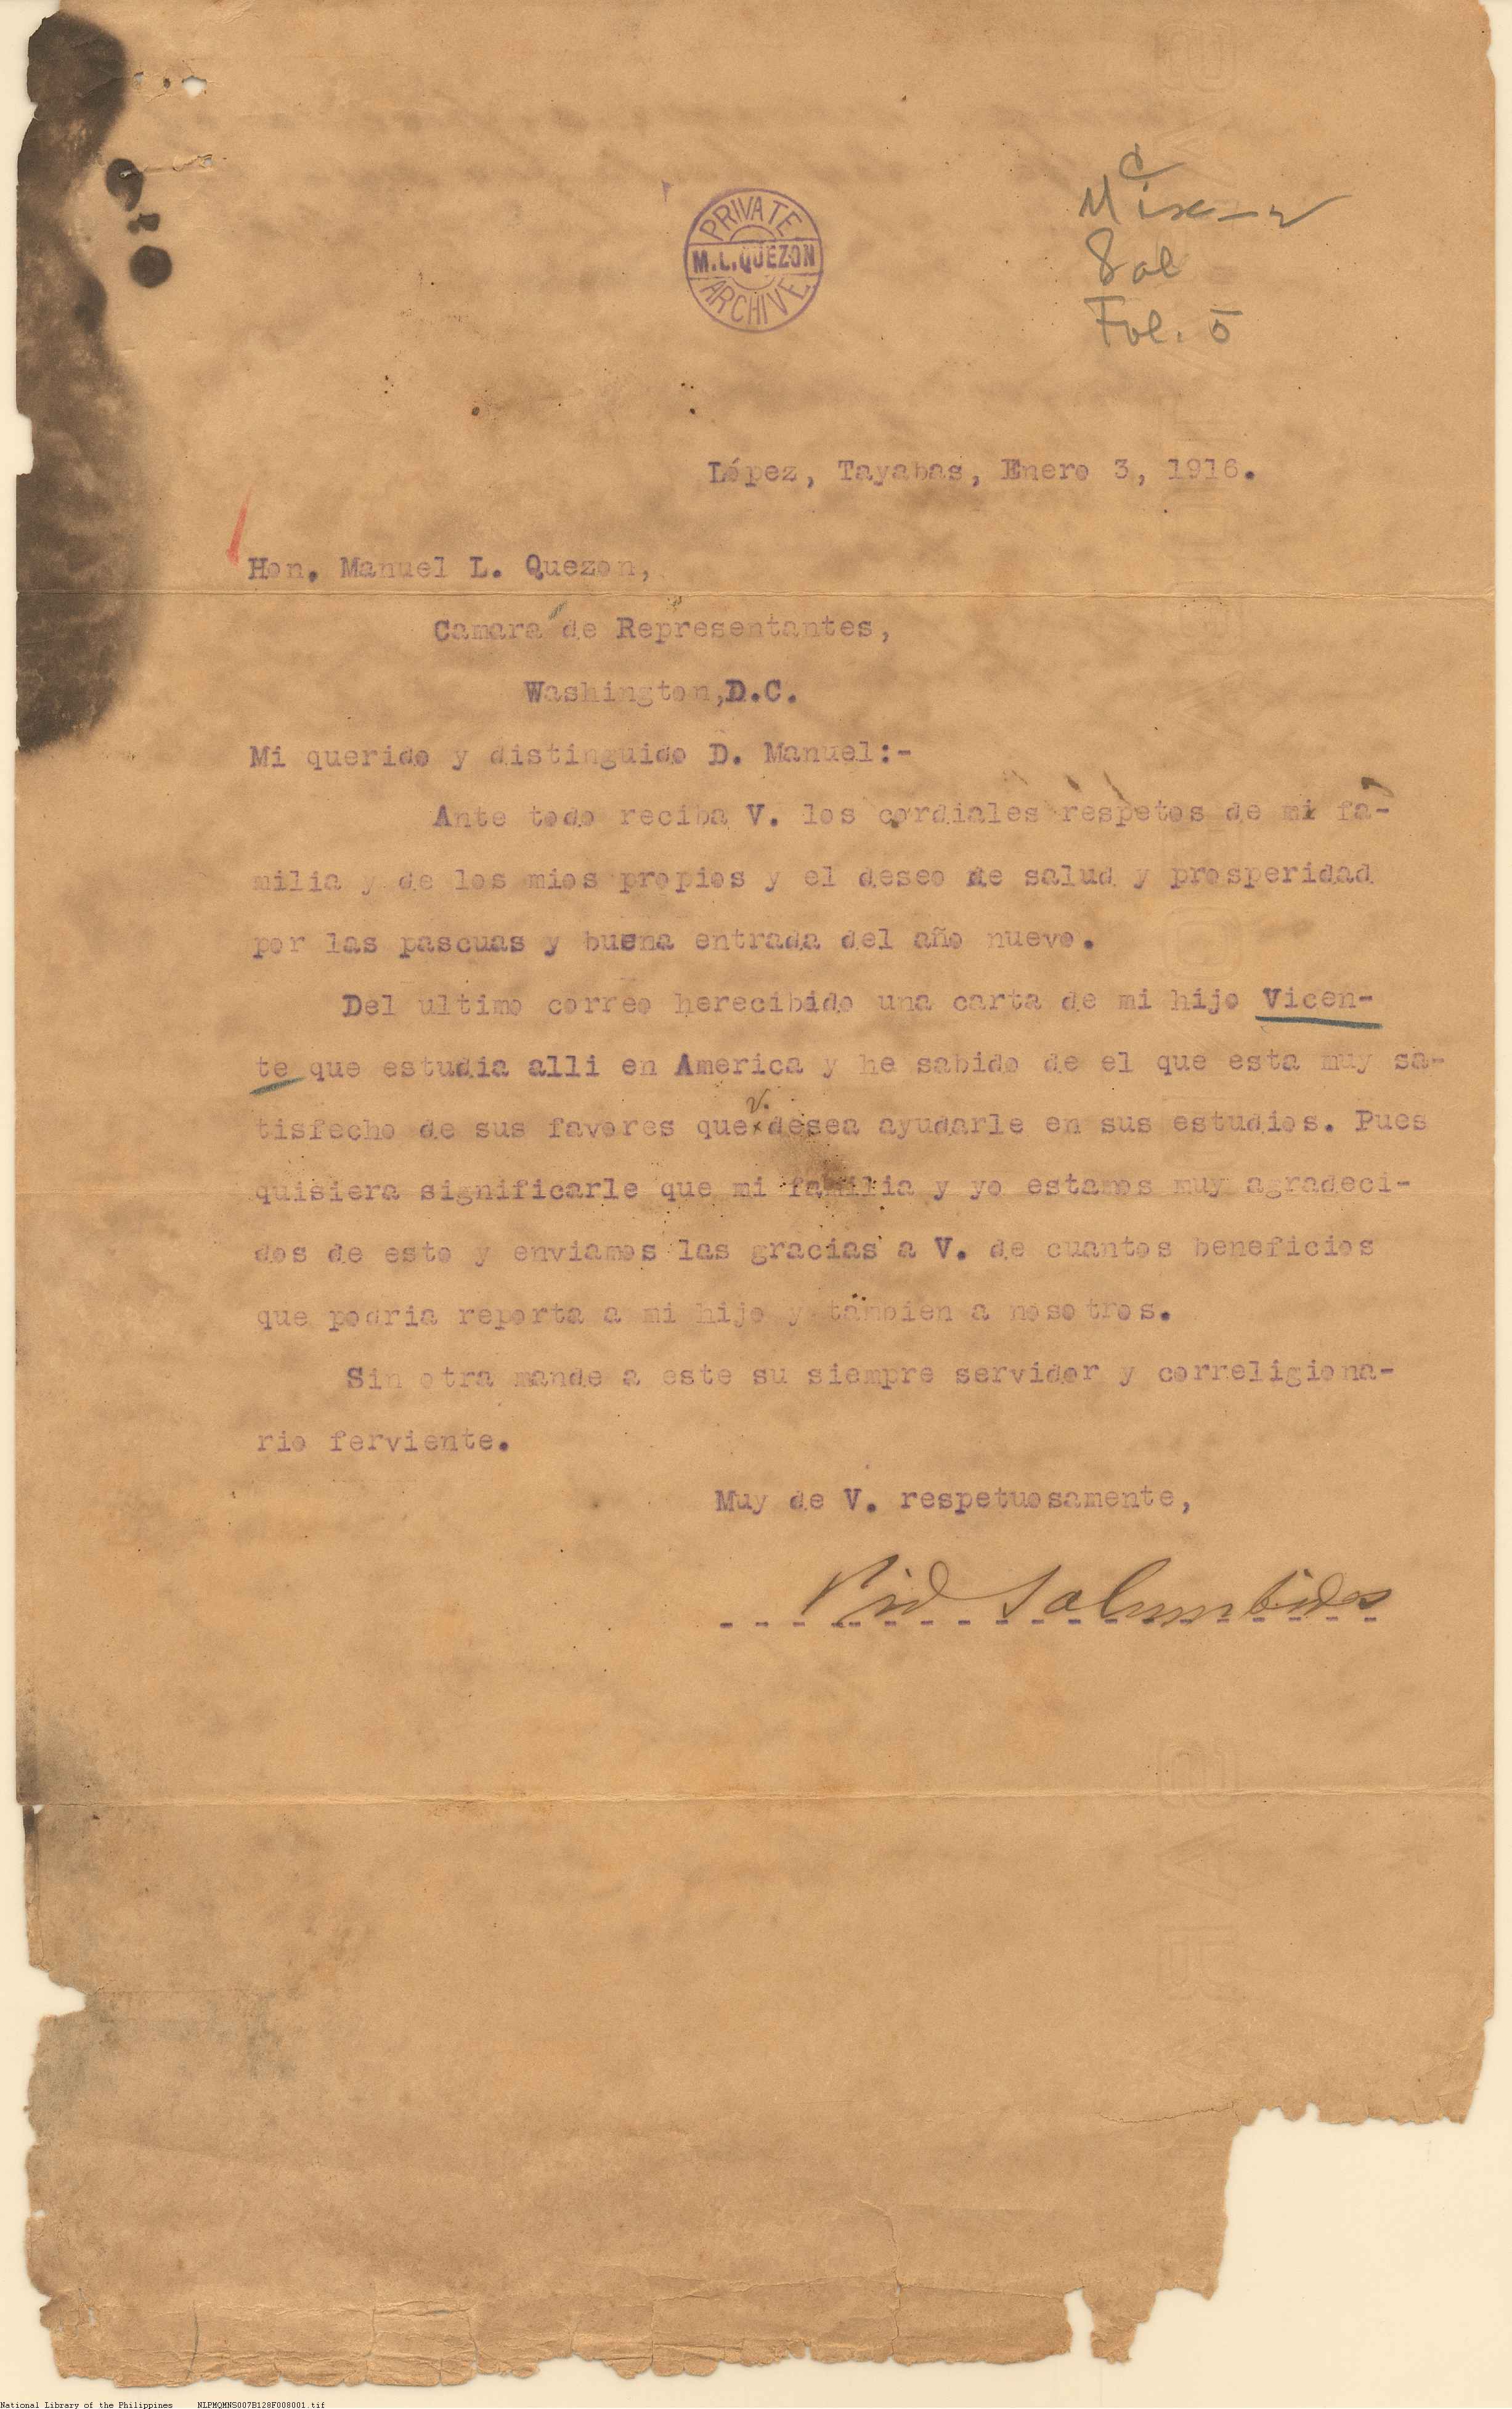 PRIVATE
M.L.QUEZON
ARCHIVE
Fol. 5
López, Tayabas, Enero 3, 1916.
Hon. Manuel L. Quezon,
Camara de Representantes,
Washington,D.C.
Mi querido y distinguido D. Manuel:-
Ante todo reciba V. los cordiales respetos de mi fa-
milia y de los mios propios y el deseo de salud y prosperidad
por las pascuas y buena entrada del año nuevo.
Del ultimo correo herecibido una carta de mi hijo Vicen-
te que estudia alli en America y he sabido de el que esta muy sa-
V.
tisfecho de sus favores que desea ayudarle en sus estudios. Pues
quisiera significarle que mi familia y yo estamos muy agradeci-
dos de esto y enviamos las gracias a V. de cuantos beneficios
que podria reporta a mi hijo y tambien a nosotros.
Sin otra mande a este su siempre servidor y correligiona-
rio ferviente.
Muy de V. respetuosamente,
Salumbides
National Library of the Philippines NLPMQMNS007B128F008001.tif